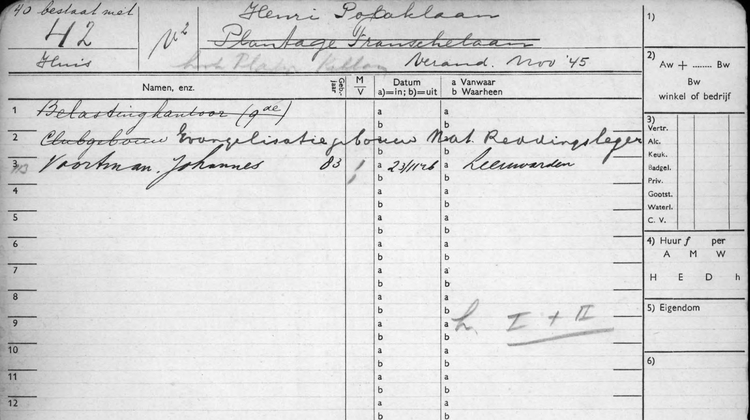 40 bestaat niet
Henri Polaklaan
42
Plantage Franschelaan
Huis
Verand. Nov '45
Namen, enz.
Geb.-jaar
M
V
Datum
a)=in; b)=uit
a Vanwaar
b Waarheen
1 Belastingkantoor (9de) a a
b b
2 Clubgebouw Evangelisatiegebouw Nat. Reddingsleger
b b
3 Voortman. Johannes 83 a 23/11 46 a Leeuwarden
b b
4 a a
b b
5 a a
b b
6 a a
b b
7 a a
b b
8 a a
b b
9 a a h. I + II
b b
10 a a
b b
11 a a
b b
12 a a
b b
1)
2)
Aw + ........ Bw
Bw
winkel of bedrijf
3)
Vertr.
Alc.
Keuk.
Badgel.
Priv.
Gootst.
Waterl.
C. V.
4) Huur ƒ per
A M W
H E D h
5) Eigendom
6)